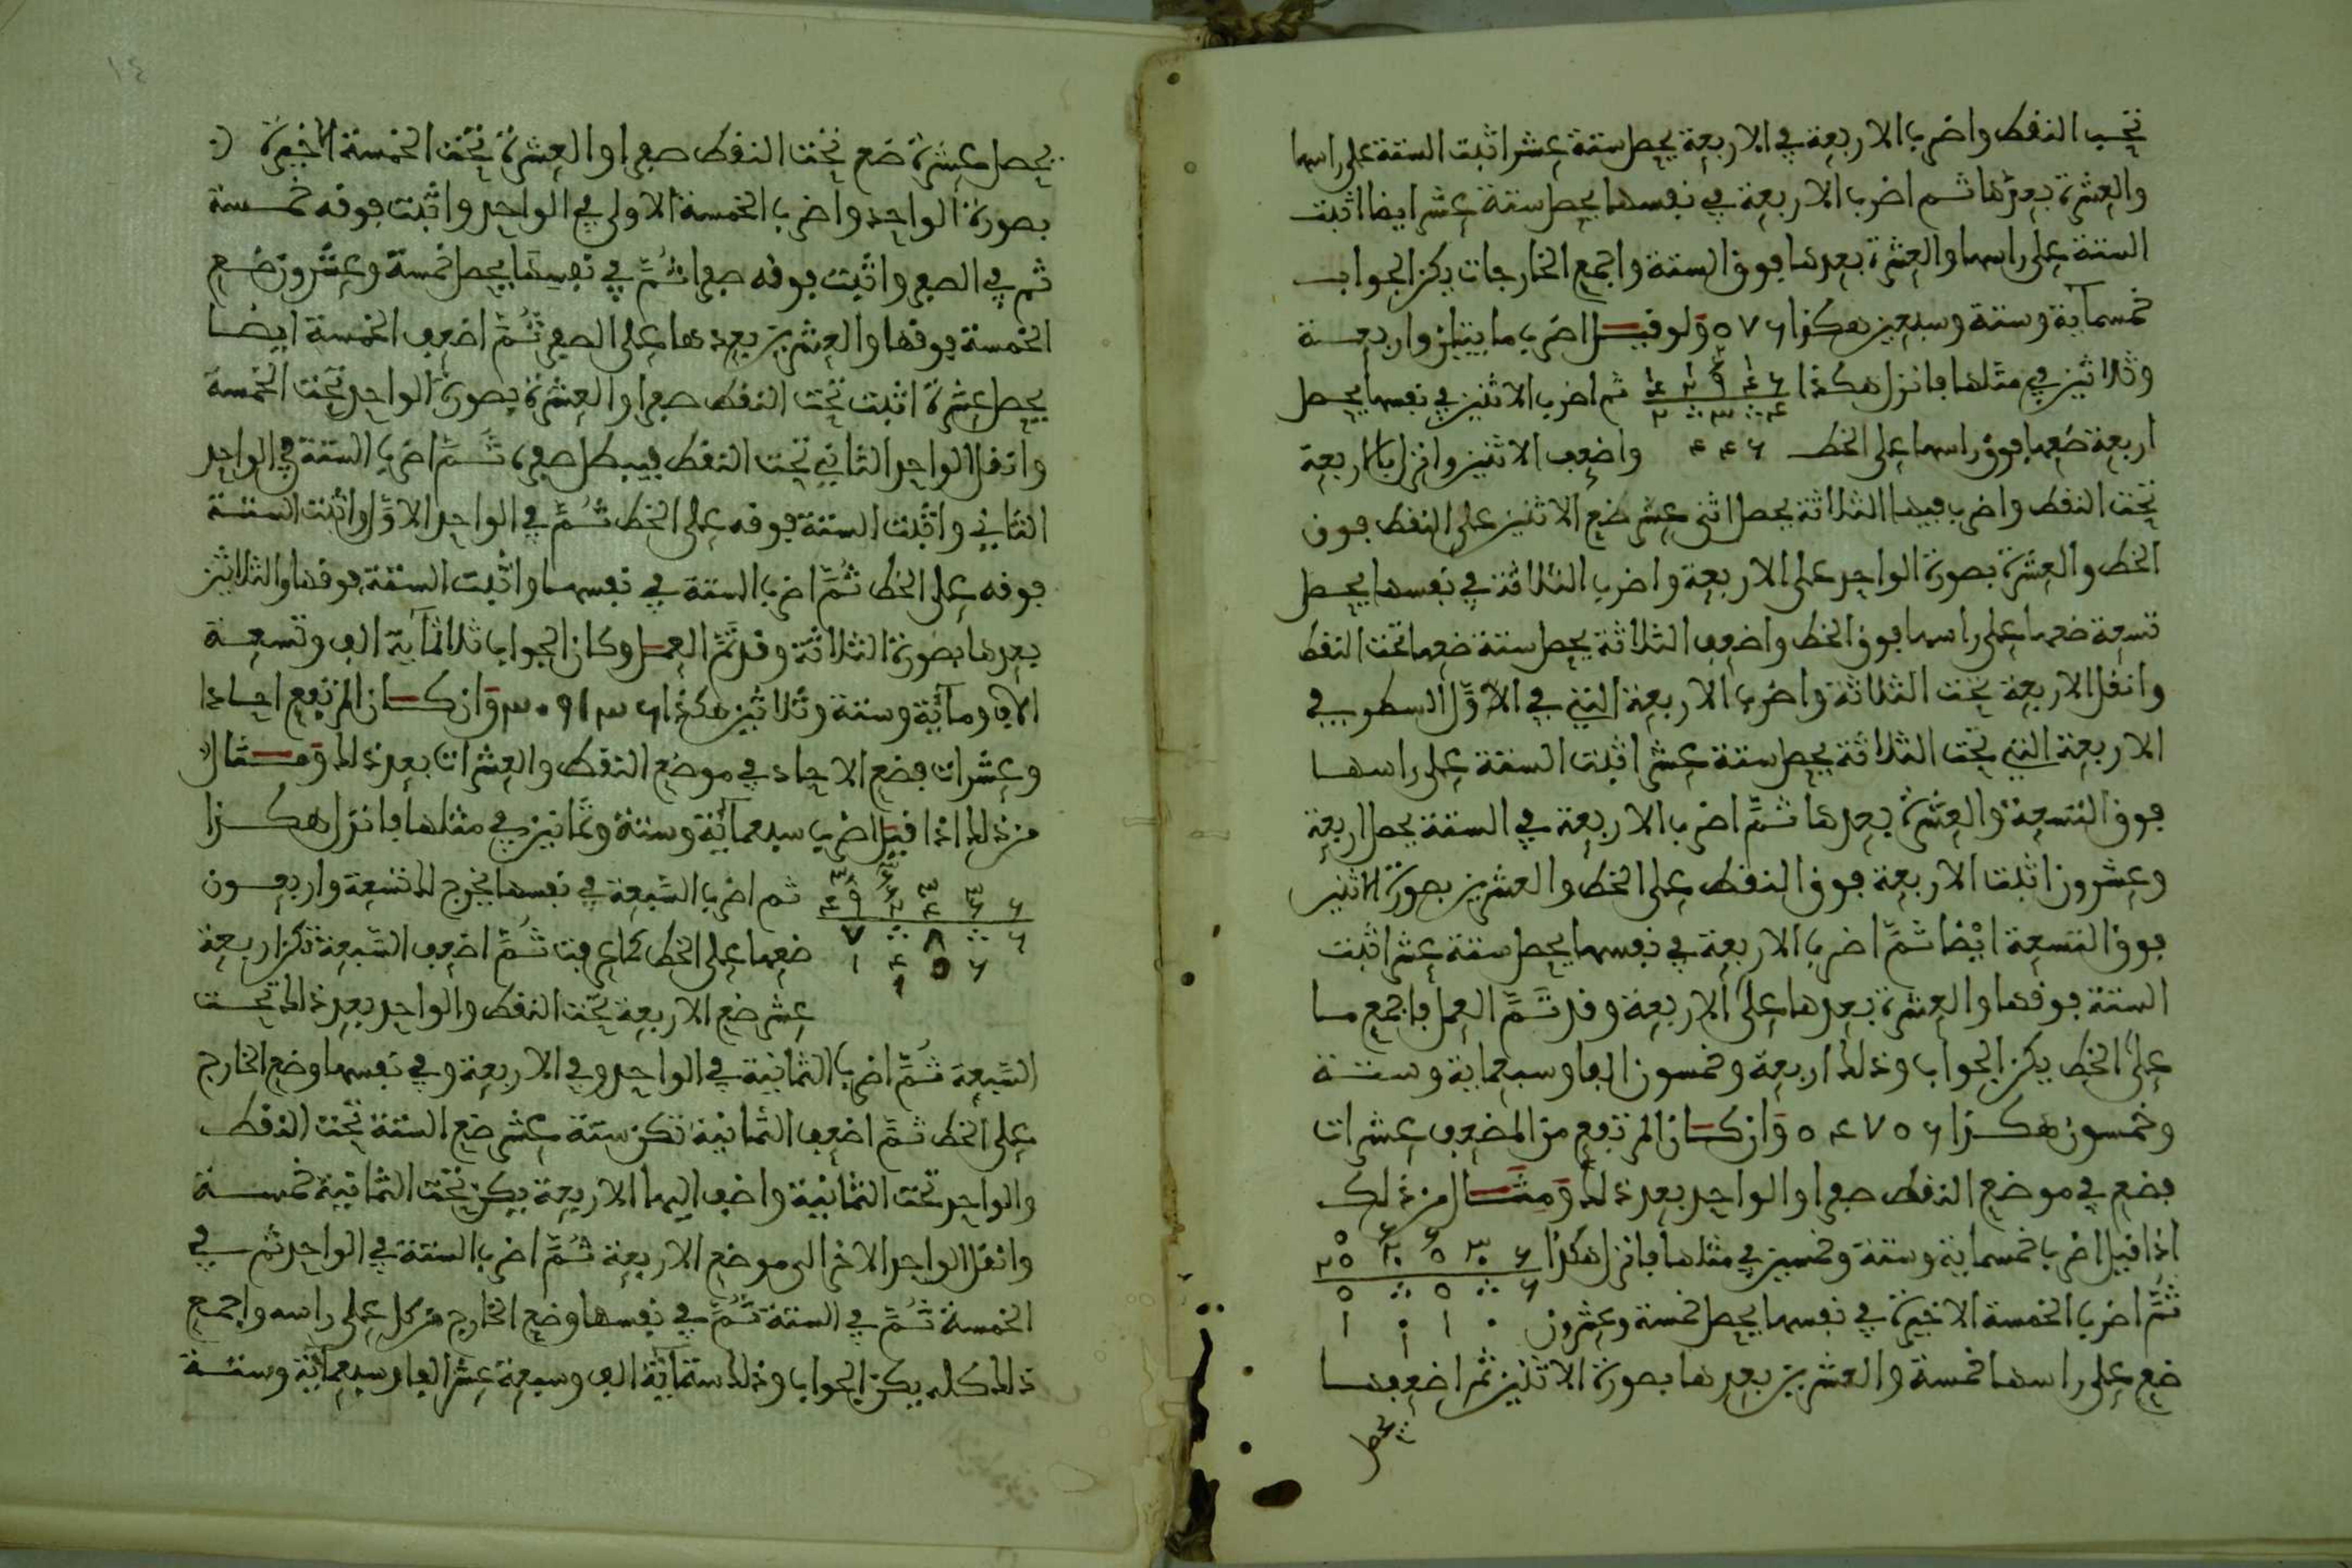 تحت النقط واضرب الاربعة في الاربعة يحصل ستة عشر اثبت الستة على راسها
والعشرة بعدها ثم اضرب الاربعة في نفسها يحصل ستة عشر ايضا اثبت
الستة على راسها والعشرة بعدها فوق الستة واجمع الخارجات يكن الجواب
خمسماية وستة وسبعين هكذا ٥٧٦ ولو قيل اضرب مايتين واربعة
وثلاثين في مثلها فانزل هكذا ثم اضرب الاثنين في نفسها يحصل
اربعة ضعها فوق راسها على الخط واضعف الاثنين وانزل بالاربعة
تحت النقط واضرب فيها الثلاثة يحصل اثنى عشر ضع الاثنين على النقط فوق
الخط والعشرة بصورة الواحد على الاربعة واضرب الثلاثة في نفسها يحصل
تسعة ضعها على راسها فوق الخط واضعف الثلاثة يحصل ستة ضعها تحت النقط
وانقل الاربعة تحت الثلاثة واضرب الاربعة التي في الاول السطر في
الاربعة التي تحت الثلاثة يحصل ستة عشر اثبت الستة على راسها
فوق التسعة والعشرة بعدها ثم اضرب الاربعة في الستة يحصل اربعة
وعشرون اثبت الاربعة فوق النقط على الخط والعشرين بصورة الاثنين
فوق التسعة ايضا ثم اضرب الاربعة في نفسها يحصل ستة عشر اثبت
الستة فوقها والعشرة بعدها على الاربعة وقد تم العمل فاجمع ما
على الخط يكن الجواب وذلك اربعة وخمسون الفا وسبعماية وستة
وخمسون هكذا ٥٤٧٥٦ وان كان المرتفع من المضعف عشرات
فضع في موضع النقط صفرا والواحد بعد ذلك ومثال من ذلك
اذا قيل اضرب خمسماية وستة وخمسين في مثلها فانزل هكذا
ثم اضرب الخمسة الاخيرة في نفسها يحصل خمسة وعشرون
ضع على راسها خمسة والعشرين بعدها بصورة الاثنين ثم اضعفها
يحصل
يحصل عشرة ضع تحت النقط صفرا والعشرة تحت الخمسة الاخيرة
بصورة الواحد واضرب الخمسة الاولى في الواحد واثبت فوقه خمسة
ثم في الصفر واثبت فوقه صفرا ثم في نفسها يحصل خمسة وعشرون ضع
الخمسة فوقها والعشرين بعدها على الصفر ثم اضعف الخمسة ايضا
يحصل عشرة اثبت تحت النقط صفرا والعشرة بصورة الواحد تحت الخمسة
وانقل الواحد الثاني تحت النقط فيبطل صفره ثم اضرب الستة في الواحد
الثاني واثبت الستة فوقه على الخط ثم في الواحد الاول واثبت الستة
فوقه على الخط ثم اضرب الستة في نفسها واثبت الستة فوقها والثلاثين
بعدها بصورة الثلاثة وقد تم العمل وكان الجواب ثلاثماية الف وتسعة
الاف ومائة وستة وثلاثين هكذا ٣٠٩١٣٦ وان كان المرتفع احادا
وعشرات فضع الاحاد في موضع النقط والعشرات بعد ذلك ومثال
من ذلك اذا قيل اضرب سبعمائة وستة وثمانين في مثلها فانزل هكذا
ثم اضرب السبعة في نفسها يخرج لك تسعة واربعون
ضعها على الخط كما عرفت ثم اضعف السبعة تكن اربعة
عشر ضع الاربعة تحت النقط والواحد بعد ذلك تحت
السبعة ثم اضرب الثمانية في الواحد وفي الاربعة وفي نفسها وضع الخارج
على الخط ثم اضعف الثمانية تكن ستة عشر ضع الستة تحت النقط
والواحد تحت الثمانية واضف اليها الاربعة يكن تحت الثمانية خمسة
وانقل الواحد الاخر الى موضع الاربعة ثم اضرب الستة في الواحد ثم في
الخمسة ثم في الستة ثم في نفسها وضع الخارج من كل على راسه واجمع
ذلك كله يكن الجواب وذلك ستمائة الف وسبعة عشر الفا وسبعمائة وستة